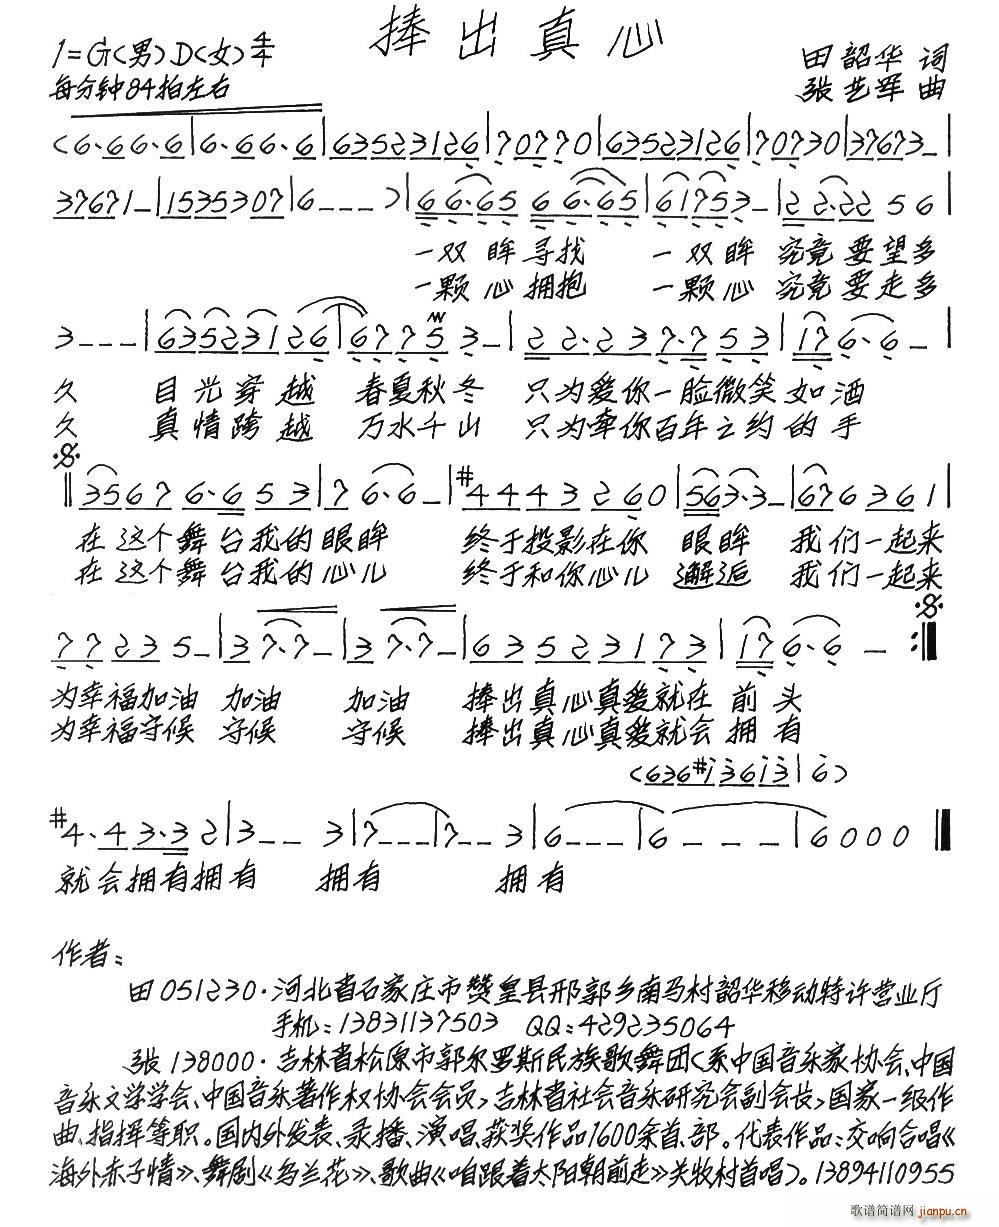 捧出真心
1=G(男)D(女)4/4
田韶华 词
每分钟84拍左右
张艺军 曲
(6·66·6|6·66·6|63523126|70770|63523126|70730|37673–|
37671–|1535307|6–––)|66·6566·65|61753–|22·2256|
一双眸寻找 一双眸 究竟要望多
一颗心拥抱 一颗心 究竟要走多
3–––|63523126|67753–|22·237·753|176·6–|
久 目光穿越 春夏秋冬 只为爱你一脸微笑如酒
久 真情跨越 万水千山 只为牵你百年之约的手
‖35676·653|76·6–|#4443260|563·3–|676361|
在这个舞台我的眼眸 终于投影在你 眼眸 我们一起来
在这个舞台我的心儿 终于和你心儿 邂逅 我们一起来
77235–|37·7–|37·7–|63523173|176·6–:‖
为幸福加油 加油 加油 捧出真心真爱就在 前头
为幸福守候 守候 守候 捧出真心真爱就会 拥有
(636#i36i3|6)
#4·43·32|3––3|7–––|7––3|6–––|6–––|6000‖
就会拥有拥有 拥有 拥有
作者:
田 051230·河北省石家庄市赞皇县邢郭乡南马村韶华移动特许营业厅
手机:13831137503 QQ:429235064
张 138000·吉林省松原市郭尔罗斯民族歌舞团(系中国音乐家协会、中国
音乐文学学会、中国音乐著作权协会会员,吉林省社会音乐研究会副会长,国家一级作
曲、指挥等职。国内外发表、录播、演唱、获奖作品1600余首、部。代表作品:交响合唱《
海外赤子情》、舞剧《乌兰花》、歌曲《咱跟着太阳朝前走》关牧村首唱)。13894110955
歌谱简谱网
jianpu.cn